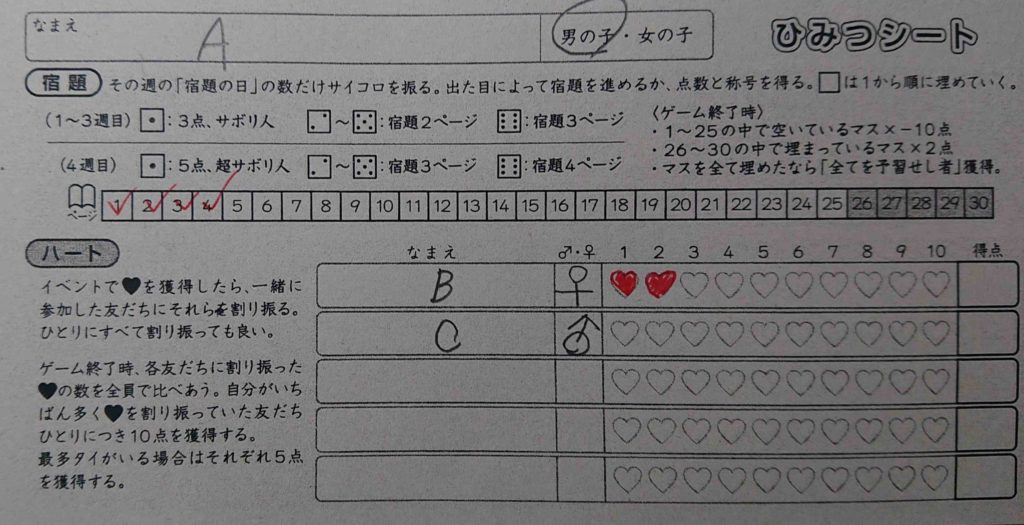 なまえ A 男の子・女の子 ひみつシート
宿題 その週の「宿題の日」の数だけサイコロを振る。出た目によって宿題を進めるか、点数と称号を得る。□は1から順に埋めていく。
(1～3週目) ⚀:3点、サボり人 ⚁～⚄:宿題2ページ ⚅:宿題3ページ
(4週目) ⚀:5点、超サボり人 ⚁～⚄:宿題3ページ ⚅:宿題4ページ
〈ゲーム終了時〉
・1～25の中で空いているマス×-10点
・26～30の中で埋まっているマス×2点
・マスを全て埋めたなら「全てを予習せし者」獲得。
ページ 1 2 3 4 5 6 7 8 9 10 11 12 13 14 15 16 17 18 19 20 21 22 23 24 25 26 27 28 29 30
ハート
イベントで♥を獲得したら、一緒に
参加した友だちにそれらを割り振る。
ひとりにすべて割り振っても良い。
ゲーム終了時、各友だちに割り振った
♥の数を全員で比べあう。自分がいち
ばん多く♥を割り振っていた友だち
ひとりにつき10点を獲得する。
最多タイがいる場合はそれぞれ5点
を獲得する。
なまえ ♂・♀ 1 2 3 4 5 6 7 8 9 10 得点
B ♀
C ♂